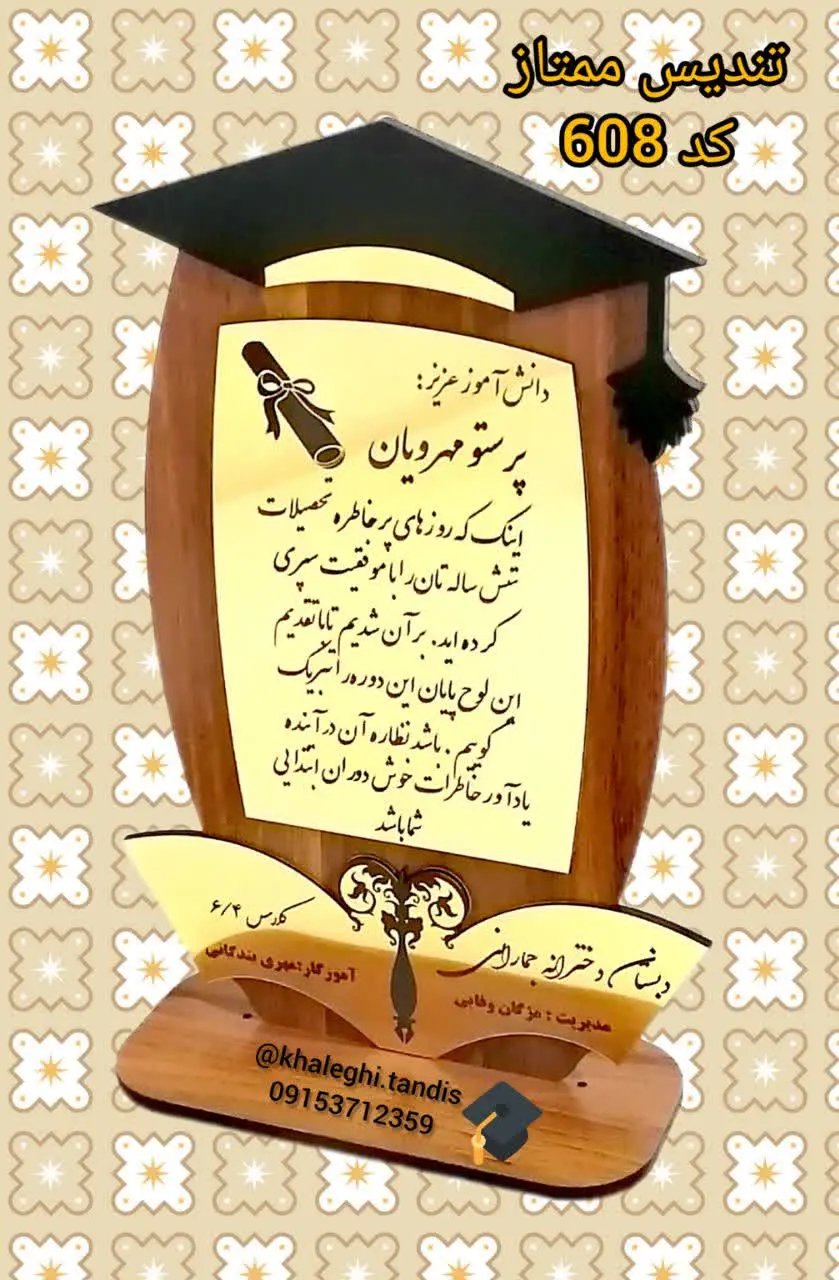 تندیس ممتاز
کد 608
دانش آموز عزیز:
پرستو مهرویان
اینک که روزهای پرخاطره تحصیلات
شش ساله تان را با موفقیت سپری
کرده اید. برآن شدیم تا با تقدیم
این لوح پایان این دوره را تبریک
گوییم. باشد نظاره آن در آینده
یادآور خاطرات خوش دوران ابتدایی
شما باشد
دبستان دخترانه جمارانی
مدیریت : مژگان وفایی
کلاس ۶/۴
آموزگار:مهری بندگانی
@khaleghi.tandis
09153712359